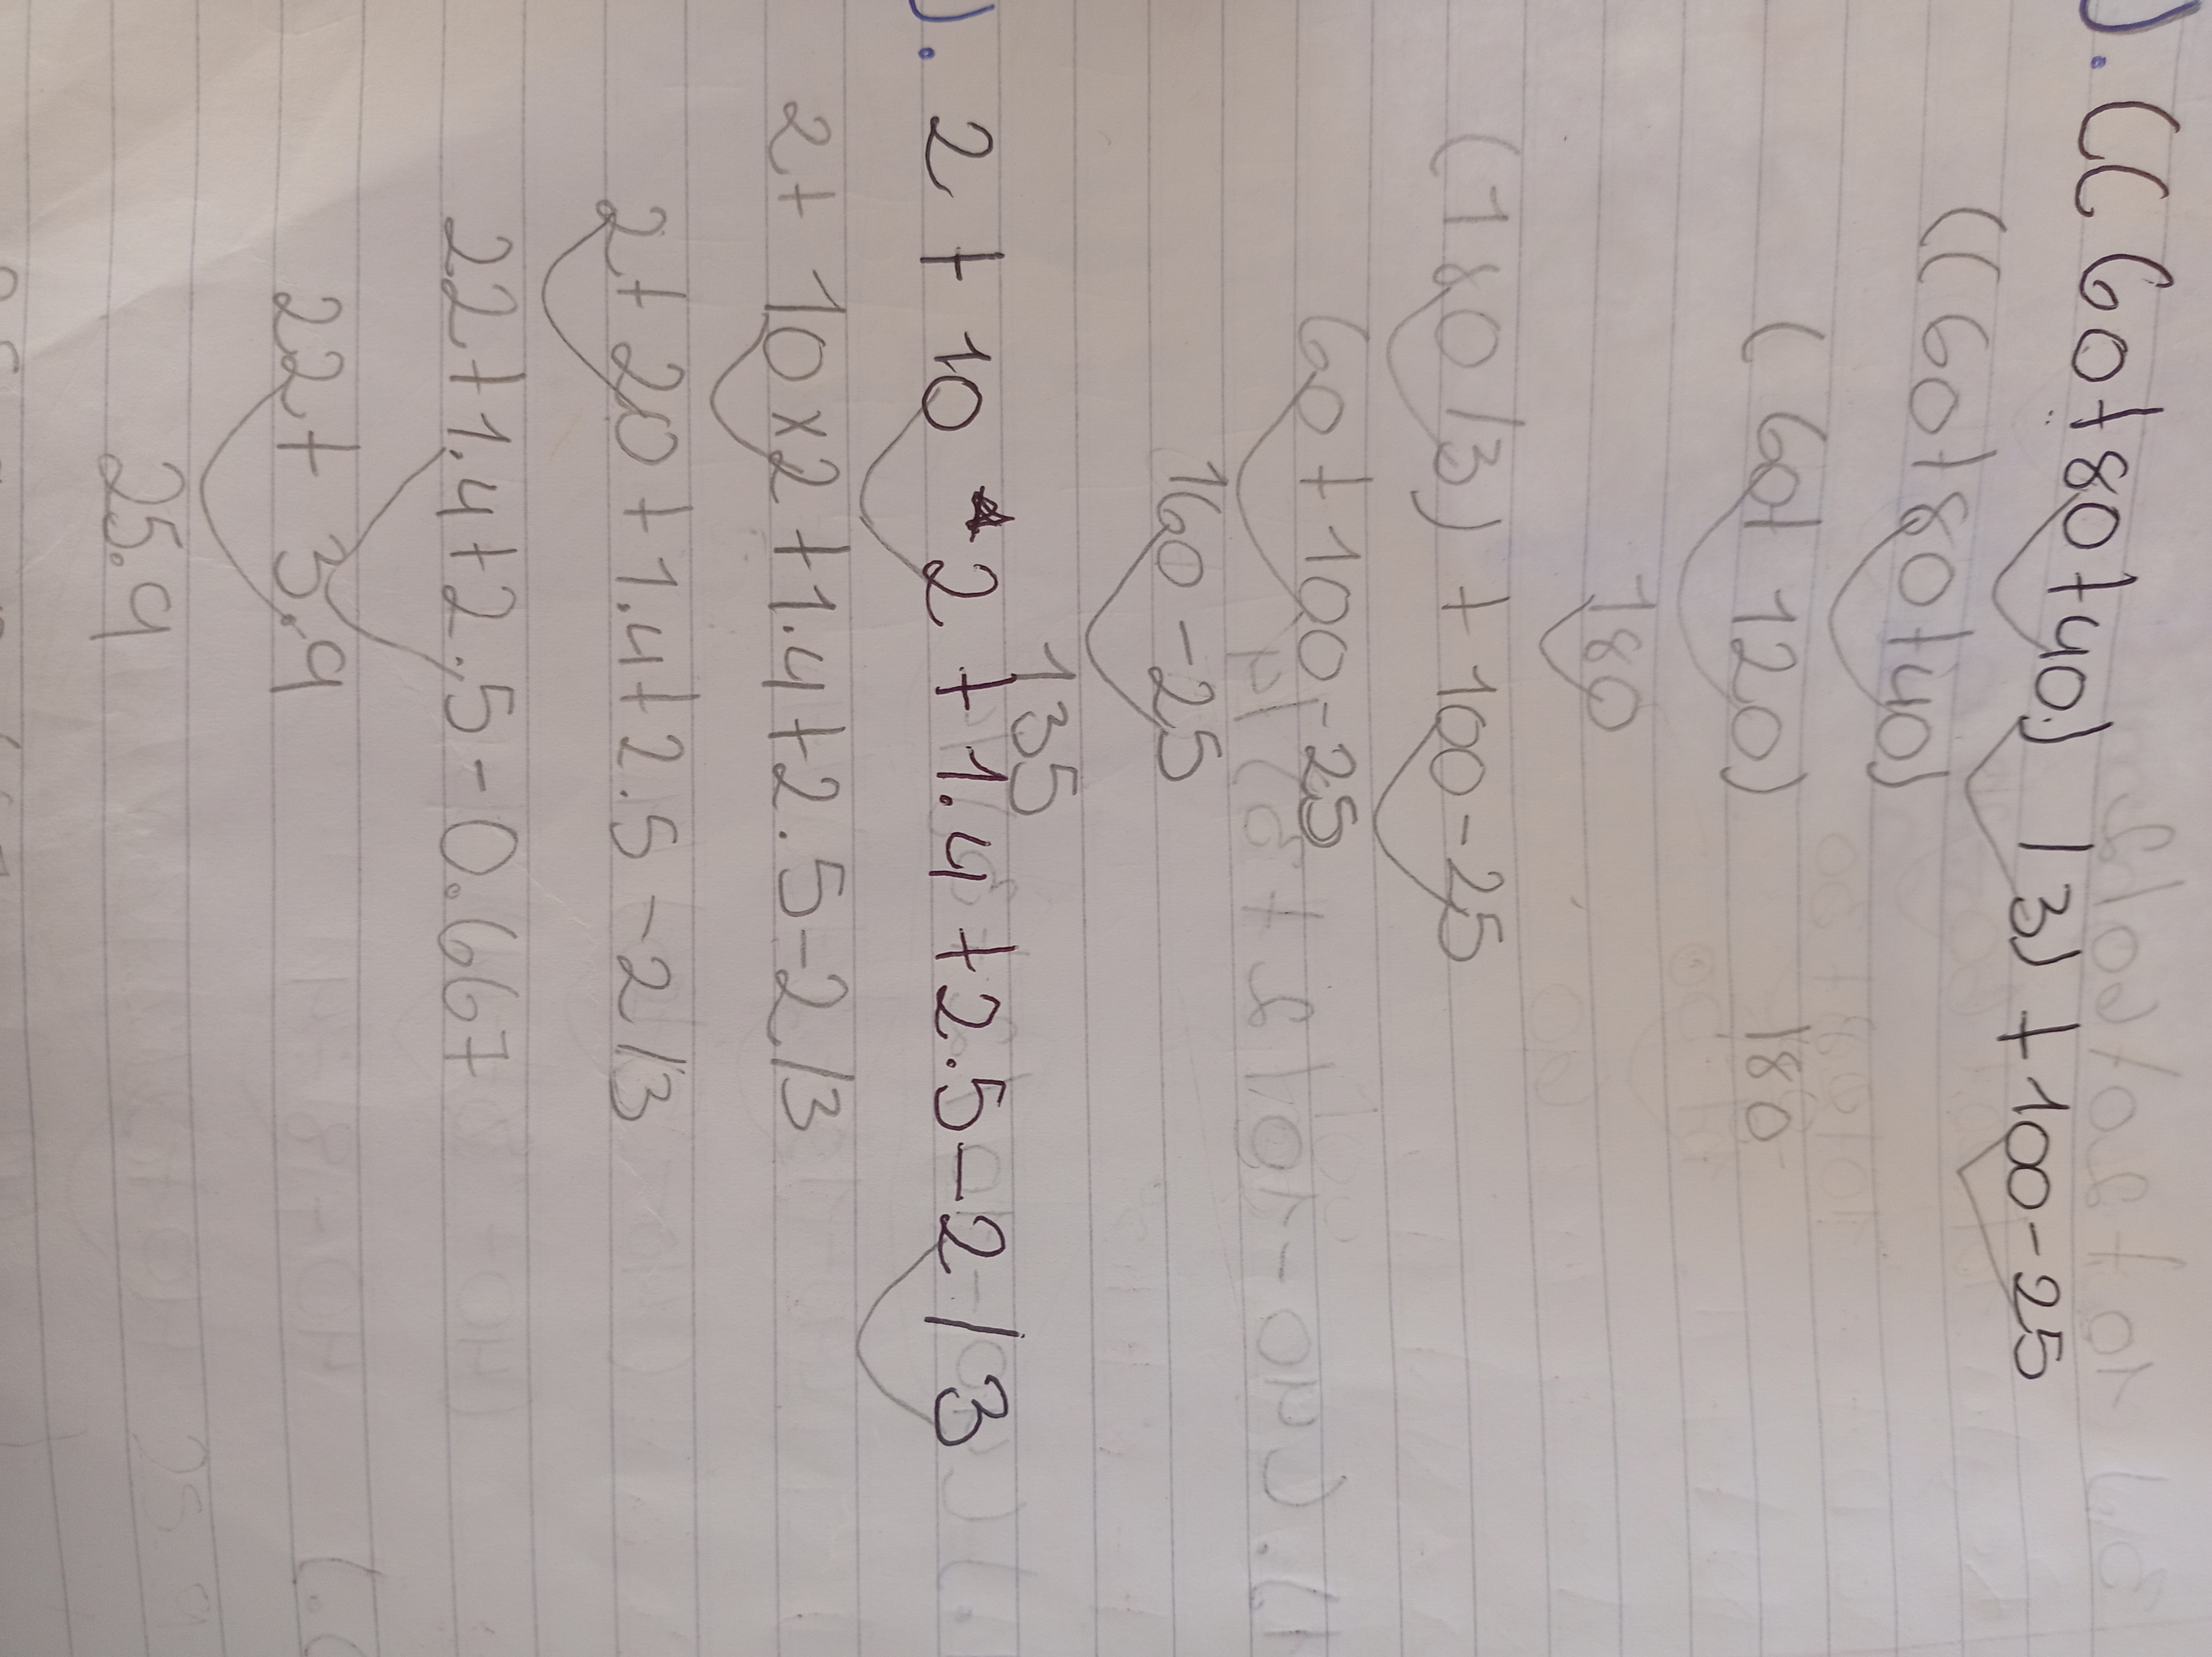 ). (( 60 + 80 + 40) / 3) + 100 - 25
(( 60 + 80 + 40)
( 60 + 120)
180
180
(180 / 3) + 100 - 25
60 + 100 - 25
160 - 25
135
). 2 + 10 * 2 + 1.4 + 2.5 - 2 / 3
2 + 10 x 2 + 1.4 + 2.5 - 2 / 3
2 + 20 + 1.4 + 2.5 - 2 / 3
22 + 1.4 + 2.5 - 0.667
22 + 3.9
25.9